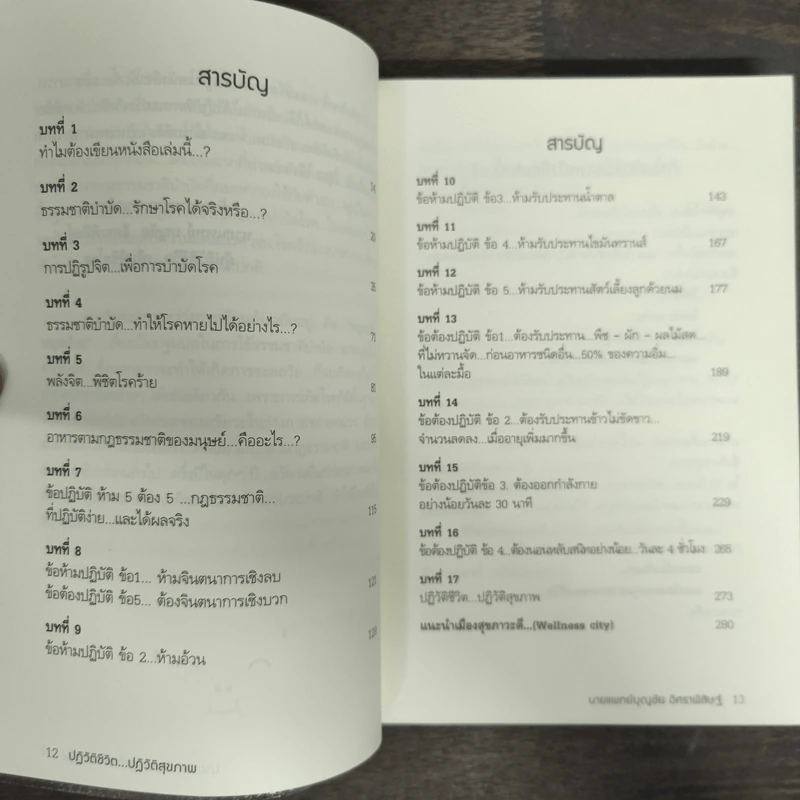 สารบัญ
บทที่ 1
ทำไมต้องเขียนหนังสือเล่มนี้...?
บทที่ 2
ธรรมชาติบำบัด...รักษาโรคได้จริงหรือ...?
บทที่ 3
การปฏิรูปจิต...เพื่อการบำบัดโรค
บทที่ 4
ธรรมชาติบำบัด...ทำให้โรคหายไปได้อย่างไร...?
บทที่ 5
พลังจิต...พิชิตโรคร้าย
บทที่ 6
อาหารตามกฎธรรมชาติของมนุษย์...คืออะไร...?
บทที่ 7
ข้อปฏิบัติ ห้าม 5 ต้อง 5 ...กฎธรรมชาติ...
ที่ปฏิบัติง่าย...และได้ผลจริง
บทที่ 8
ข้อห้ามปฏิบัติ ข้อ1... ห้ามจินตนาการเชิงลบ
ข้อต้องปฏิบัติ ข้อ5... ต้องจินตนาการเชิงบวก
บทที่ 9
ข้อห้ามปฏิบัติ ข้อ 2...ห้ามอ้วน
12 ปฏิวัติชีวิต...ปฏิวัติสุขภาพ
สารบัญ
บทที่ 10
ข้อห้ามปฏิบัติ ข้อ3...ห้ามรับประทานน้ำตาล 143
บทที่ 11
ข้อห้ามปฏิบัติ ข้อ 4...ห้ามรับประทานไขมันทรานส์ 167
บทที่ 12
ข้อห้ามปฏิบัติ ข้อ 5...ห้ามรับประทานสัตว์เลี้ยงลูกด้วยนม 177
บทที่ 13
ข้อต้องปฏิบัติ ข้อ1...ต้องรับประทาน...พืช - ผัก - ผลไม้สด...
ที่ไม่หวานจัด...ก่อนอาหารชนิดอื่น...50% ของความอิ่ม...
ในแต่ละมื้อ 189
บทที่ 14
ข้อต้องปฏิบัติ ข้อ 2...ต้องรับประทานข้าวไม่ขัดขาว...
จำนวนลดลง...เมื่ออายุเพิ่มมากขึ้น 219
บทที่ 15
ข้อต้องปฏิบัติข้อ 3. ต้องออกกำลังกาย
อย่างน้อยวันละ 30 นาที 229
บทที่ 16
ข้อต้องปฏิบัติ ข้อ 4...ต้องนอนหลับสนิทอย่างน้อย...วันละ 4 ชั่วโมง 265
บทที่ 17
ปฏิวัติชีวิต...ปฏิวัติสุขภาพ 273
แนะนำเมืองสุขภาวะดี...(Wellness city) 280
นายแพทย์บุญชัย อิศราพิสิษฐ์ 13